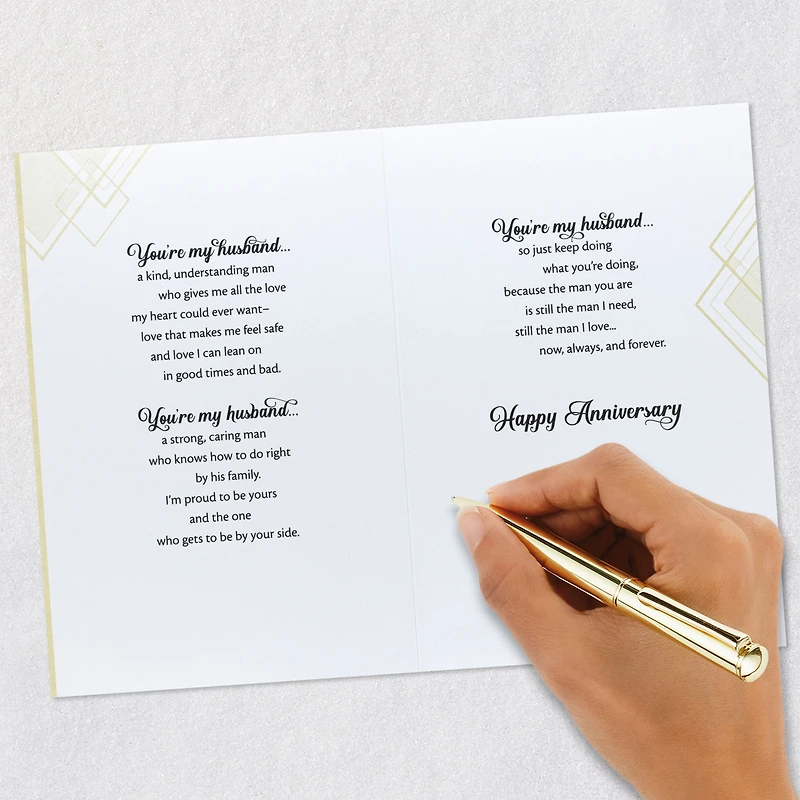 You're my husband...
a kind, understanding man
who gives me all the love
my heart could ever want–
love that makes me feel safe
and love I can lean on
in good times and bad.
You're my husband...
a strong, caring man
who knows how to do right
by his family.
I'm proud to be yours
and the one
who gets to be by your side.
You're my husband...
so just keep doing
what you're doing,
because the man you are
is still the man I need,
still the man I love...
now, always, and forever.
Happy Anniversary